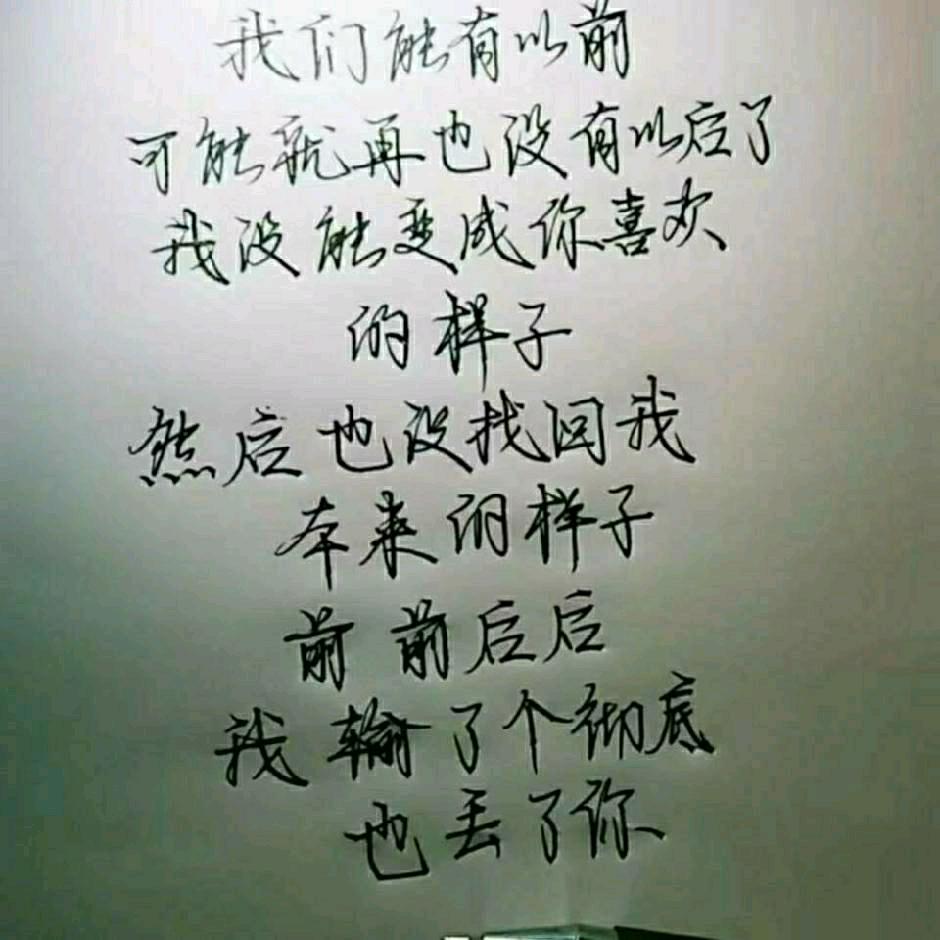 我们能有以前
可能就再也没有以后了
我没能变成你喜欢
的样子
然后也没找回我
本来的样子
前前后后
我输了个彻底
也丢了你